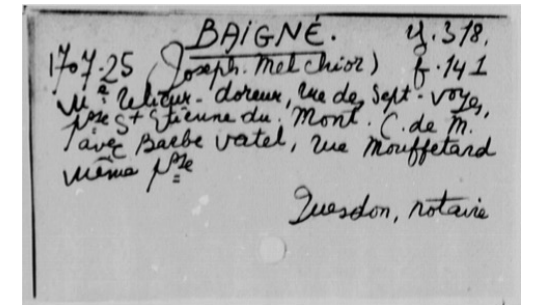 BAIGNÉ. y. 318.
1707.25 (Joseph. Melchior) f. 141
M.e Relieur-doreur, rue des Sept-voyes,
psse St Etienne du Mont. C. de M.
avec Barbe vatel, rue Mouffetard
même psse
Quesdon, notaire